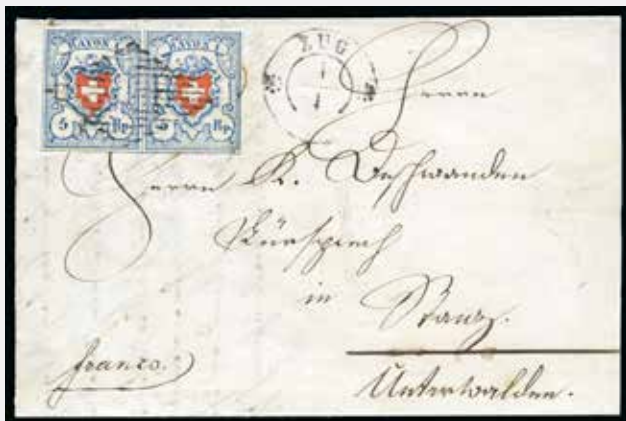 RAYON I. RAYON I.
5 Rp. 5 Rp.
ZUG
Herrn
Herrn K. Deschwanden
Fürsprech
in Stanz.
Unterwalden.
franco.